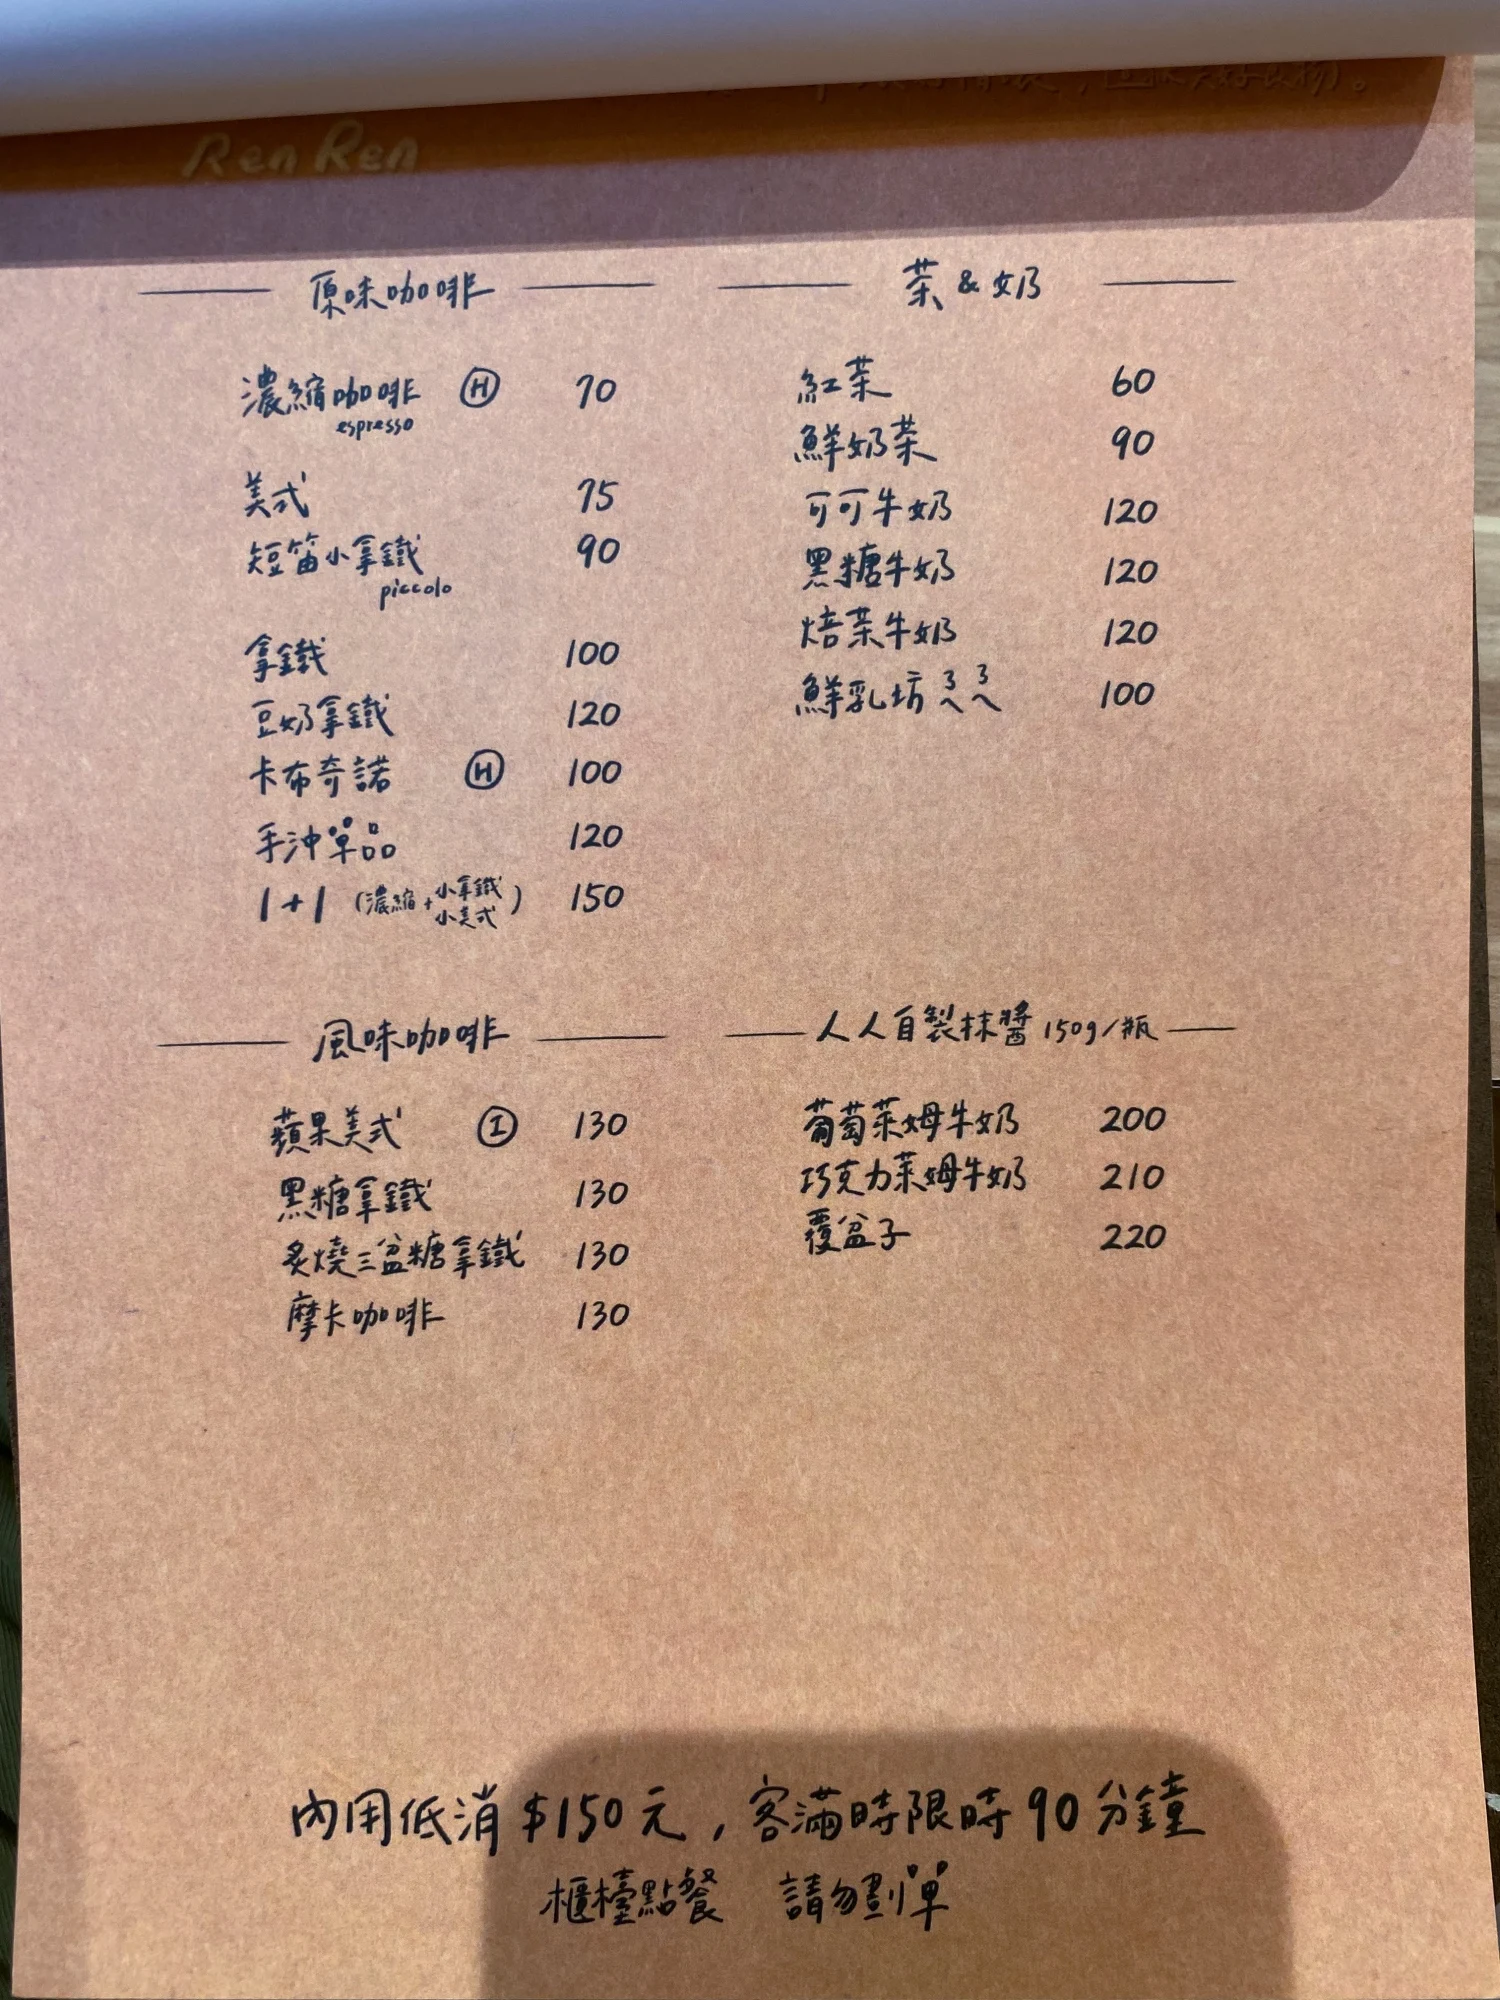 Ren Ren
原味咖啡
濃縮咖啡 Ⓗ 70
espresso
美式 75
短笛小拿鐵 90
piccolo
拿鐵 100
豆奶拿鐵 120
卡布奇諾 Ⓗ 100
手沖單品 120
1+1 (濃縮+小拿鐵 小美式) 150
茶&奶
紅茶 60
鮮奶茶 90
可可牛奶 120
黑糖牛奶 120
焙茶牛奶 120
鮮乳坊ㄋㄟㄋㄟ 100
風味咖啡
蘋果美式 Ⓘ 130
黑糖拿鐵 130
炙燒三盆糖拿鐵 130
摩卡咖啡 130
人人自製抹醬 150g/瓶
葡萄萊姆牛奶 200
巧克力萊姆牛奶 210
覆盆子 220
內用低消$150元,客滿時限時90分鐘
櫃檯點餐 請勿劃單